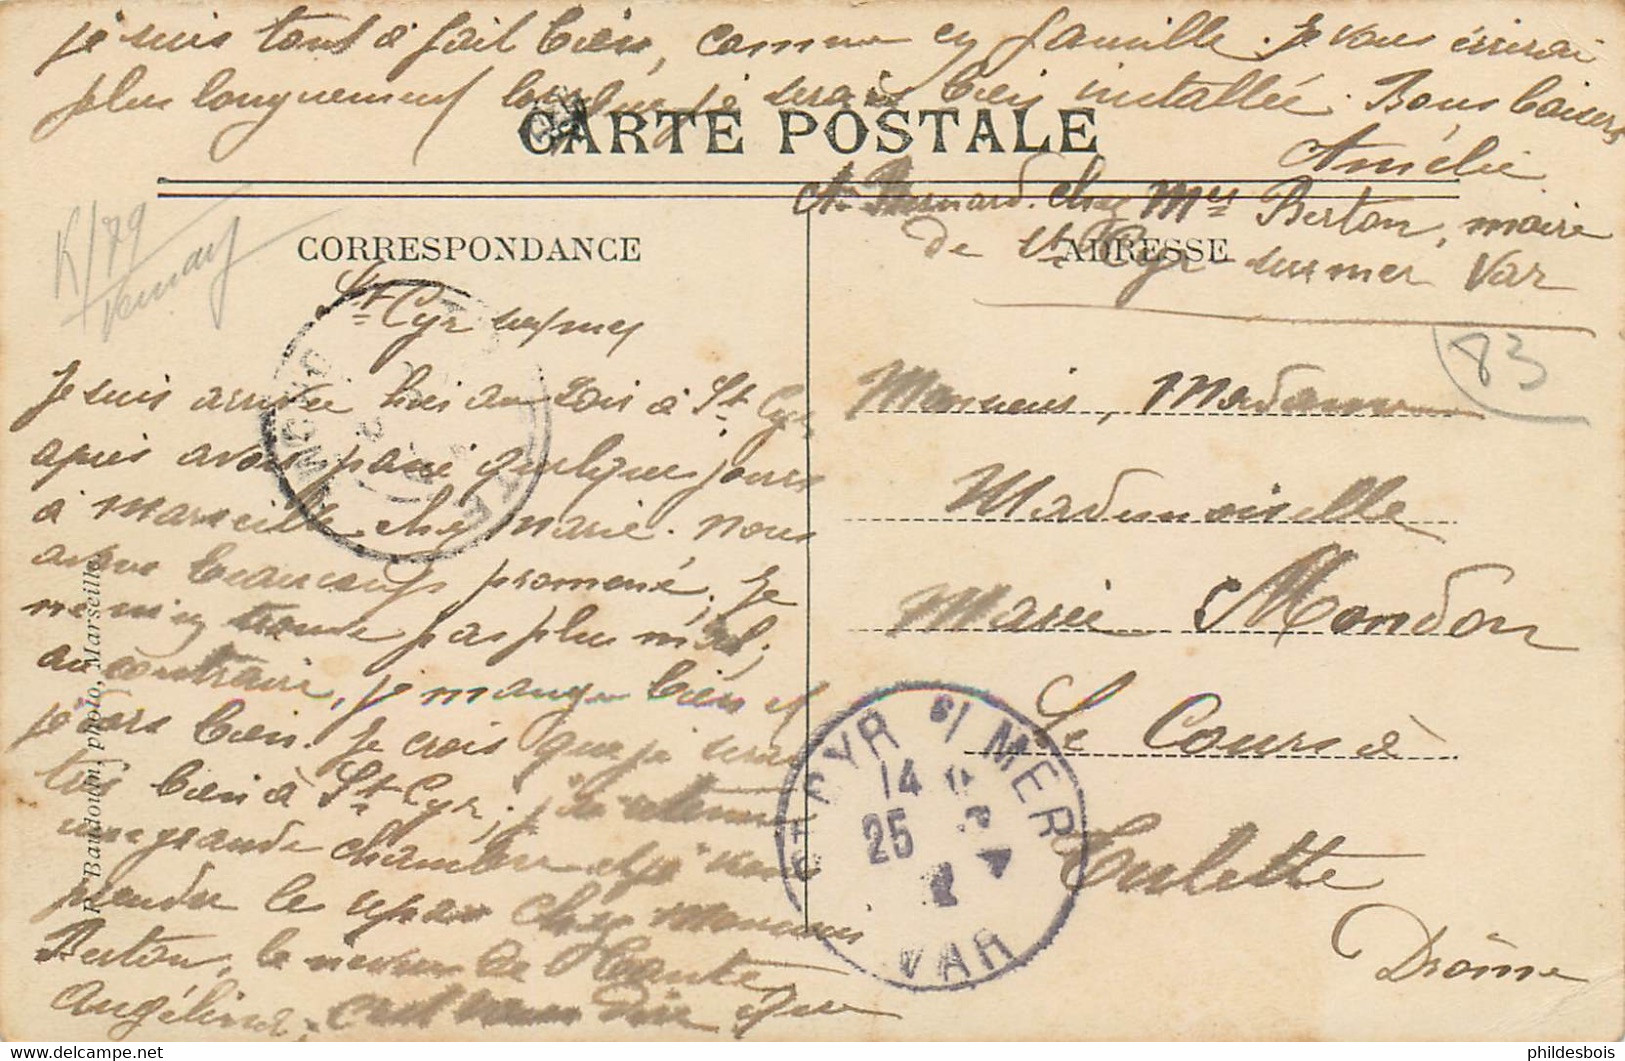 je suis tout à fait bien, comme en famille. Je vous écrirai
plus longuement lorsque je serais bien installée. Bons baisers
Amélie
CARTE POSTALE
A. Bernard. chez Mr Berton, maire
de St Cyr sur mer Var
CORRESPONDANCE
ADRESSE
K/79
83
St Cyr sur/mer
Je suis arrivée hier au soir à St Cyr,
après avoir passé quelques jours
à Marseille chez Marie. Nous
avons beaucoup promené. Je
ne m'en trouve pas plus mal,
au contraire, je mange bien et
je dors bien. Je crois que je serai
très bien à St Cyr, j'ai
une grande chambre et je vais
prendre le repas chez Monsieur
Berton, le neveu de Tante
Angéline, c'est vous dire que
Baudouin, photo, Marseille
Monsieur, Madame
Mademoiselle
Marie Mondon
Le Cours à
Tulette
Drôme
ST CYR S/ MER
14
25
VAR
phildesbois